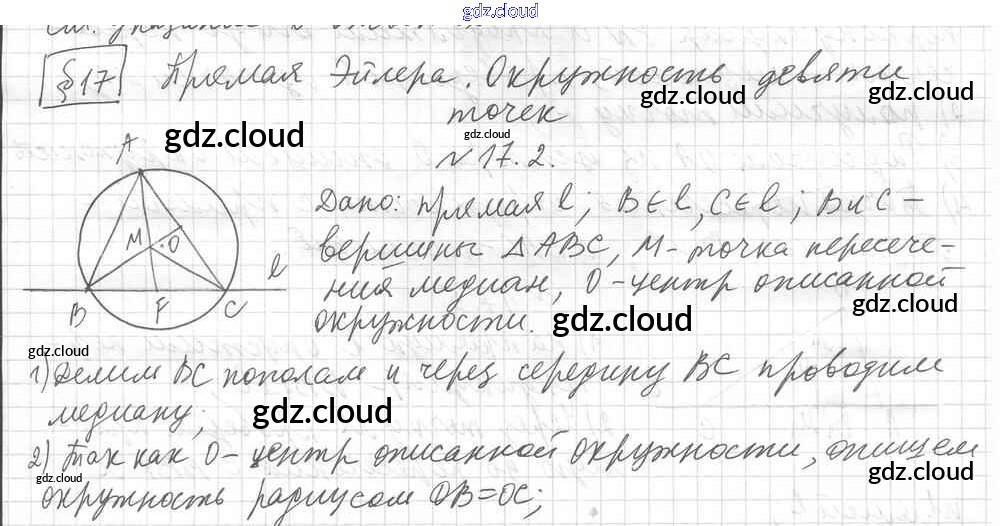 gdz.cloud
§17 Прямая Эйлера. Окружность девяти
gdz.cloud gdz.cloud
точек
gdz.cloud gdz.cloud
N 17.2.
A
M O
B F C l
Дано: прямая l; B∈l, C∈l; B и C –
вершины △ABC, M – точка пересече-
ния медиан, O – центр описанной
окружности. gdz.cloud gdz.cloud
gdz.cloud
1) Делим BC пополам и через середину BC проводим
медиану; gdz.cloud gdz.cloud
2) Так как O – центр описанной окружности, опишем
gdz.cloud gdz.cloud
окружность радиусом OB=OC;